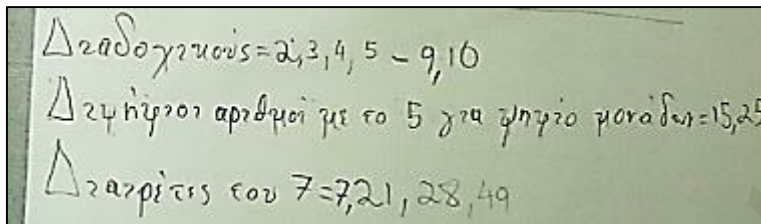 Διαδοχικούς=2,3,4,5-9,10
Διψήφιοι αριθμοί με το 5 για ψηφίο μονάδων=15,25
Διαιρέτες του 7=7,21,28,49